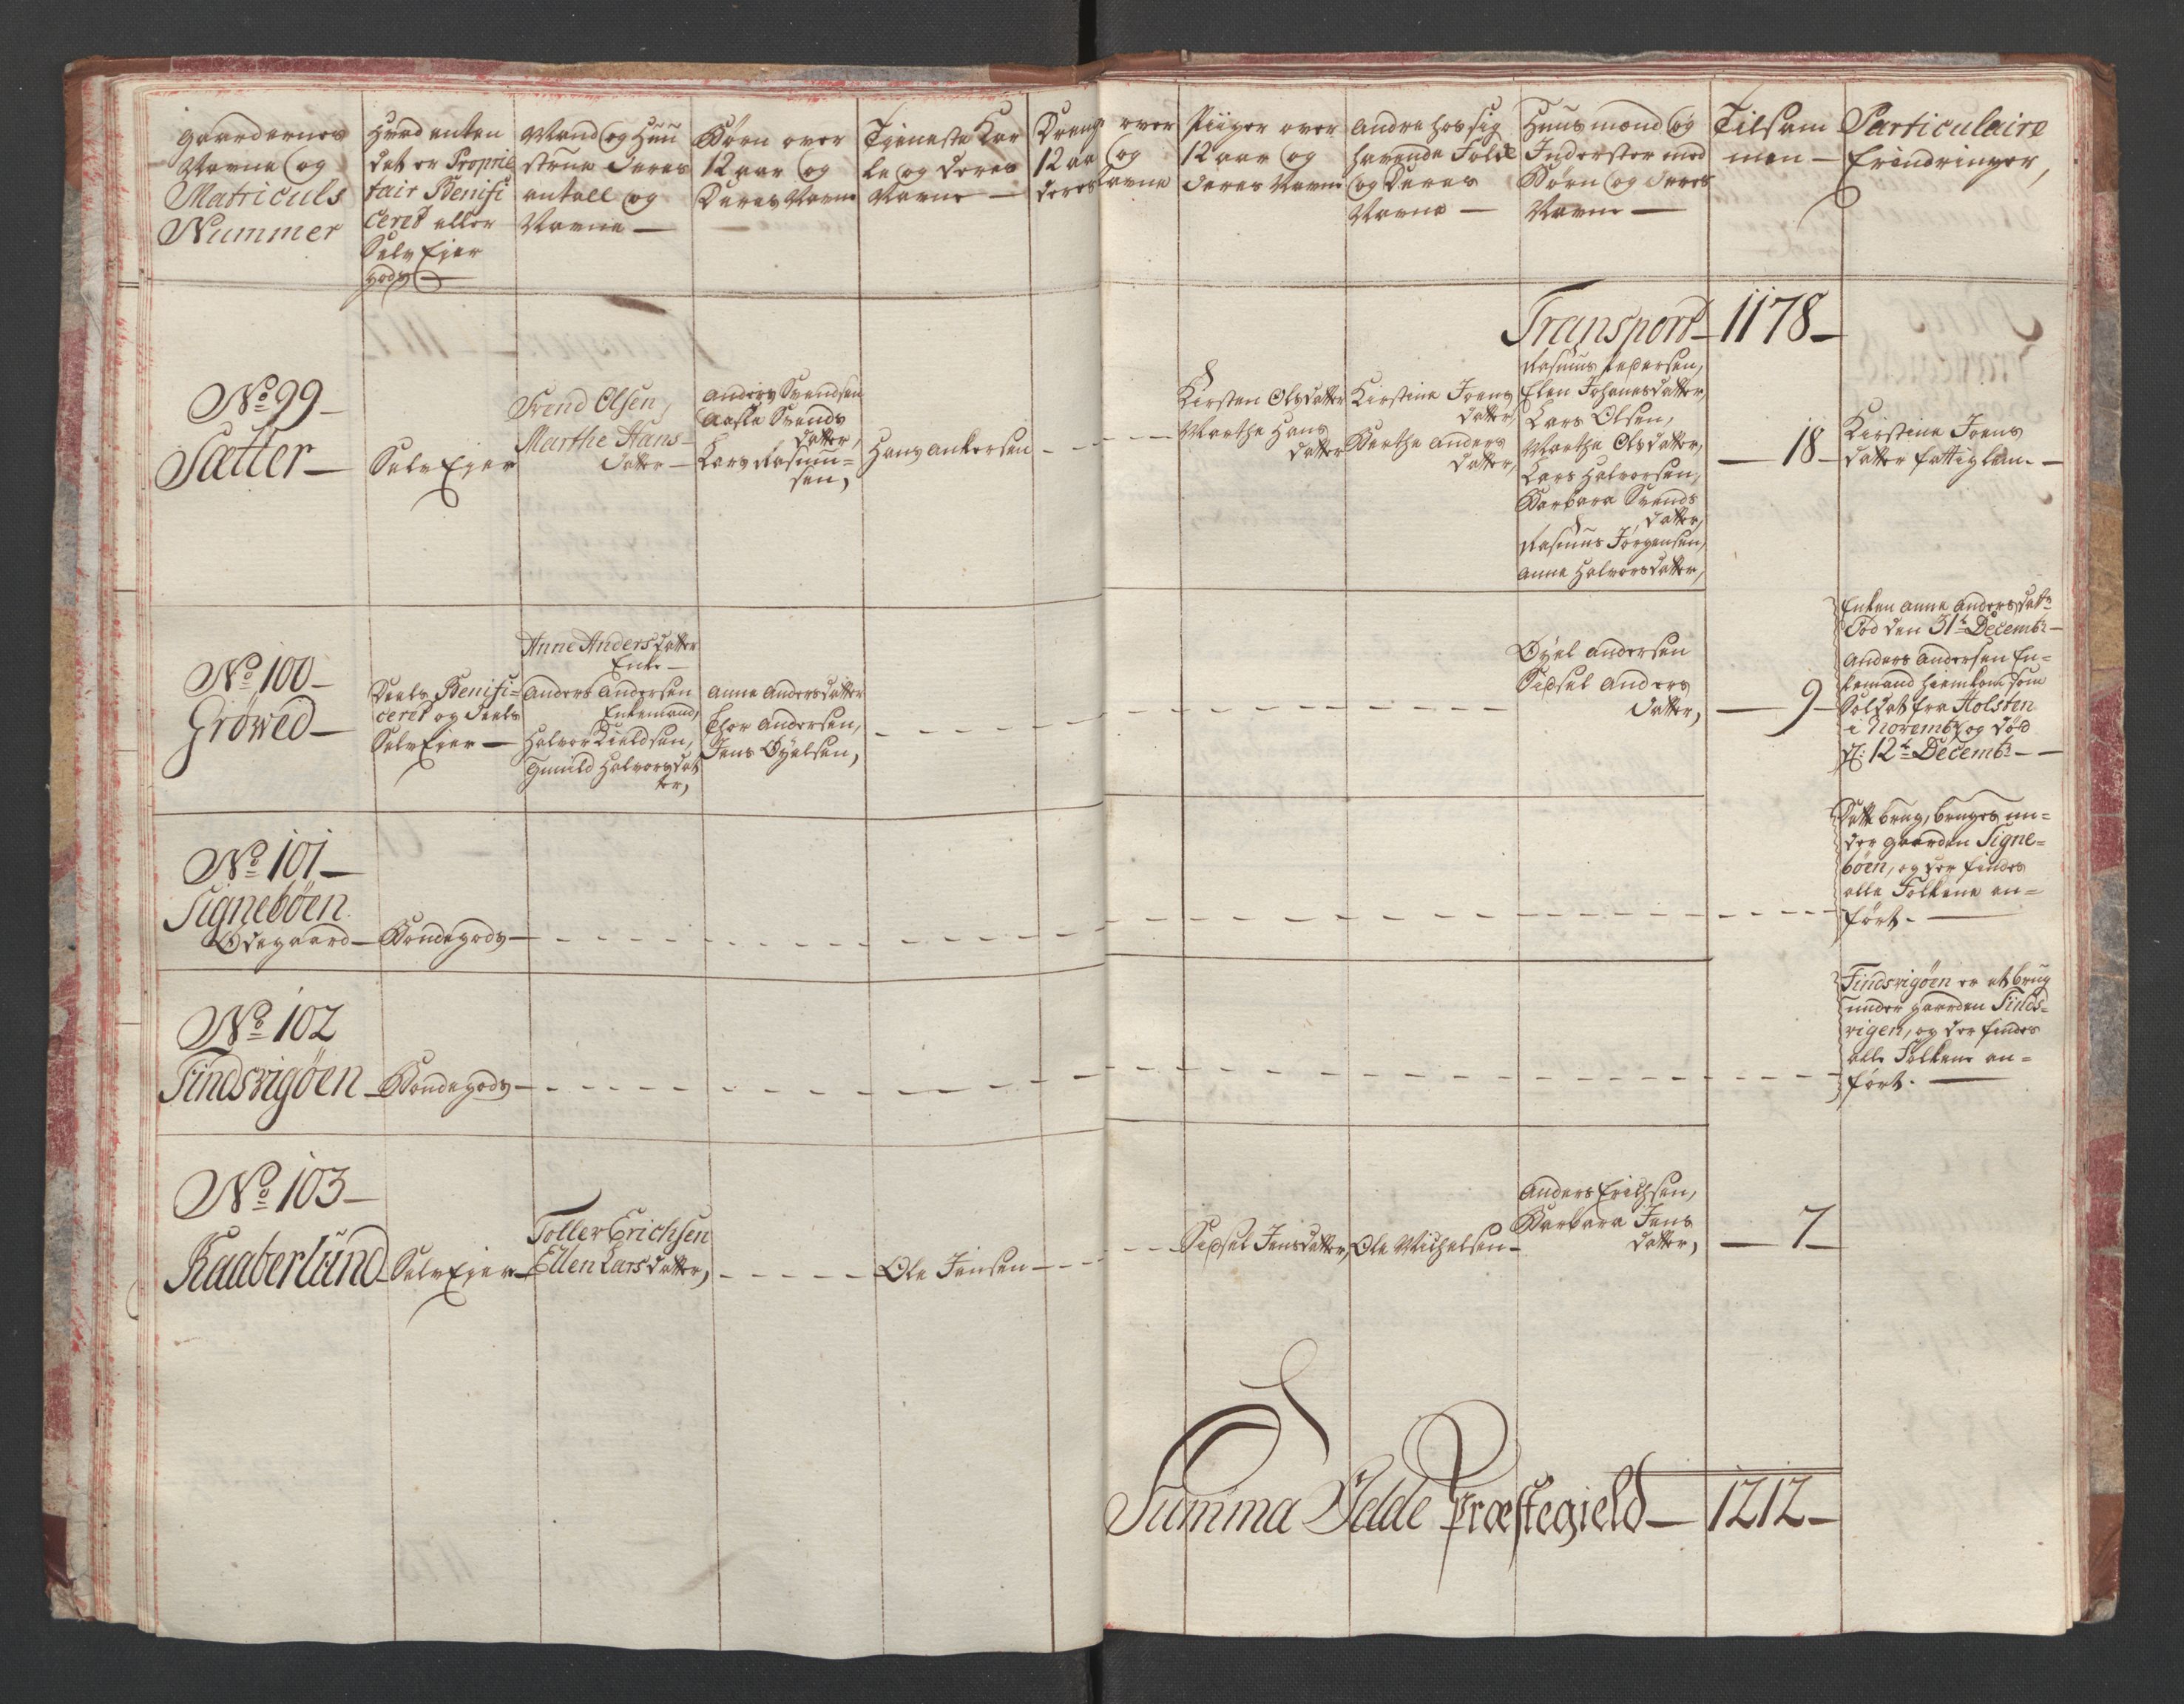 Gaardernes
Navne og
Matriculs
Nummer
Hvad enten
det er Proprie
tair Benifi
ceret eller
Selv Ejer
gods
Mand og Huu
strue deres
antall og
Navne
Børn over
12 aar og
Deres Navne
Tieneste Kar
le og deres
Navne
Drenge over
12 aar og
deres Navne
Piiger over
12 aar og
deres Navne
Andre hos sig
havende Folk
og Deres
Navne
Huusmænd og
Inderster med
Børn og deres
Navne
Tilsam
men
Particulaire
Erindringer,
Transport 1178
No 99
Sætter
Selv Ejer
Svend Olsen,
Marthe Hans
datter
Anders Svendsen
Aasle Svends
datter,
Lars Rasmu=
sen,
Hans Ankersen
Kirsten Olsdatter
Marthe Hans
datter
Kirstine Joens
datter,
Berthe Anders
datter,
Rasmus Pedersen,
Elen Johanesdatter,
Lars Olsen,
Marthe Olsdatter,
Lars Halvorsen,
Barbara Svends
datter,
Rasmus Jørgensen,
Anne Halvorsdatter,
18
Kirstine Joens
datter fattig lem.
No 100
Grøwed
Deels Benifi=
ceret og deels
Selv Ejer
Anne Anders datter
Enke
Anders Andersen
Enkemand,
Halvor Kieldsen,
Gunild Halvorsdat
ter,
Anne Andersdatter
Thor Andersen,
Jens Øyelsen,
Øyel Andersen
Sidsel Anders
datter,
9
Enken Anne Anders datr
Død den 31te Decembr
Anders Andersen En=
kemand hiemkom som
Soldat fra Holsten
i Novembr og død
d: 12te Decembr
No 101
Signebøen
Ødegaard
Bondegods
Dette brug, bruges un=
der gaarden Signe=
bøen, og der findes
alle Folkene an=
ført.
No 102
Findsvigøen
Bondegods
Findsvigøen er et brug
under gaarden Finds=
vigen, og der findes
alle Folkene an=
ført.
No 103
Kaaberlund
Selv Ejer
Toller Erichsen
Ellen Lars datter,
Ole Jensen
Sidsel Jensdatter,
Ole Michelsen
Anders Erichsen,
Barbara Jens
datter,
7
Summa Idde Præstegield 1212